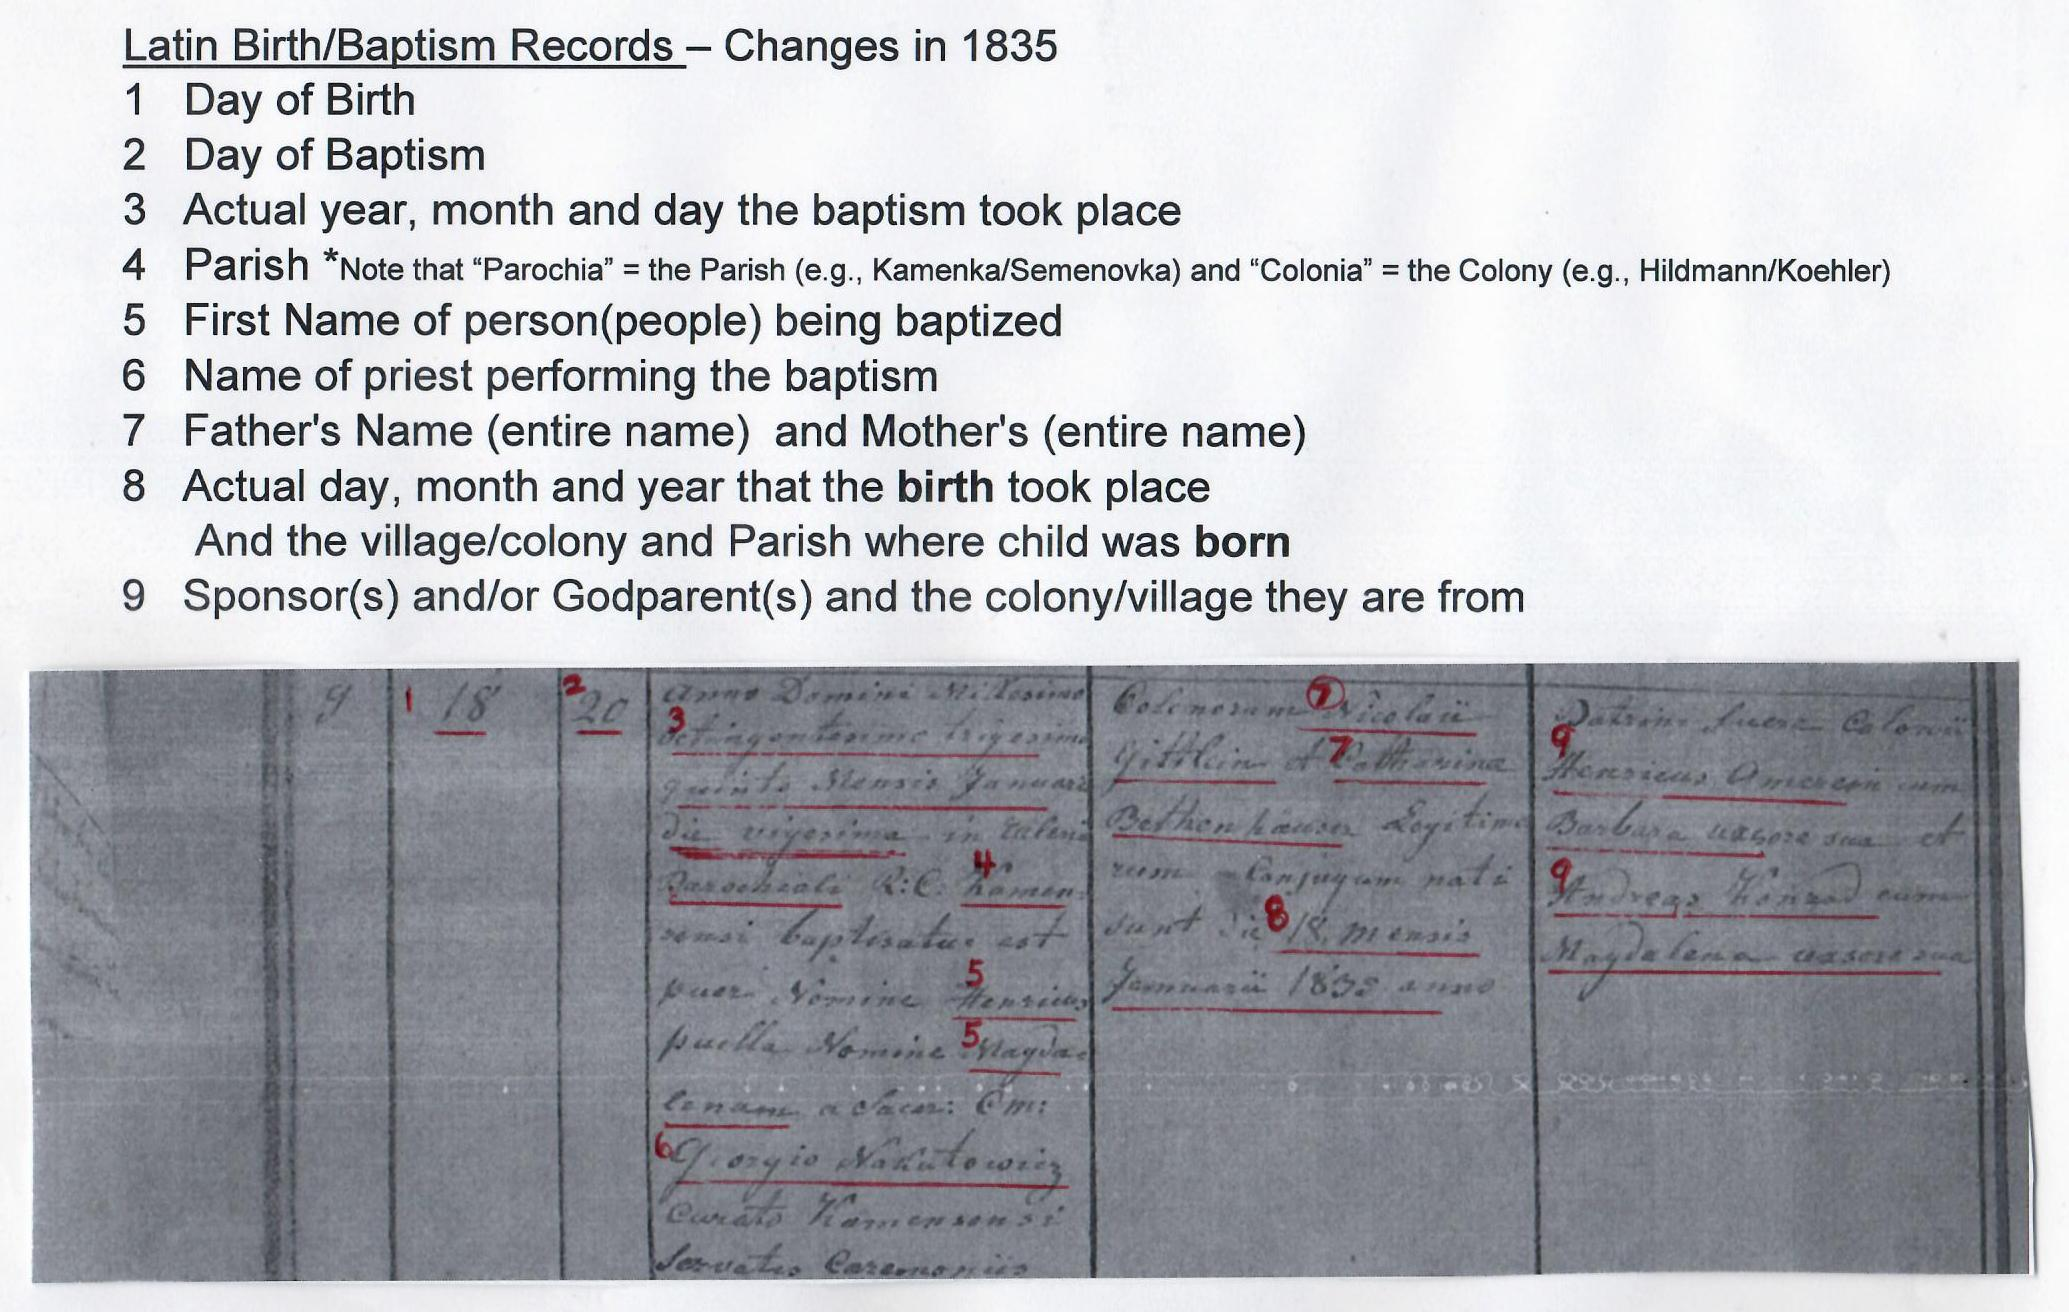 Latin Birth/Baptism Records – Changes in 1835
1 Day of Birth
2 Day of Baptism
3 Actual year, month and day the baptism took place
4 Parish *Note that “Parochia” = the Parish (e.g., Kamenka/Semenovka) and “Colonia” = the Colony (e.g., Hildmann/Koehler)
5 First Name of person(people) being baptized
6 Name of priest performing the baptism
7 Father's Name (entire name) and Mother's (entire name)
8 Actual day, month and year that the birth took place
And the village/colony and Parish where child was born
9 Sponsor(s) and/or Godparent(s) and the colony/village they are from
9
1 18
2 20
Anno Domini Millesimo
3 octingentesimo trigesimo
quinto Mensis Januarii
die vigesima in
Parochiali R:C: 4 Kamen
sensi baptisatus est
puer Nomine 5 Henricus
puella Nomine 5 Magda
lenam a Sacer:
6 Georgio Nakutowicz
Curato Kamensensi
Servatis
Colonorum 7 Nicolaii
Gittlein et 7 Catharina
Bethenhauser Legitimo
rum Conjugum nati
sunt die 8 18 mensis
Januarii 1835 anno
Patrini fuere
9 Henricus Amerein cum
Barbara uxore sua et
9 Andreas Konrad cum
Magdalena uxore sua